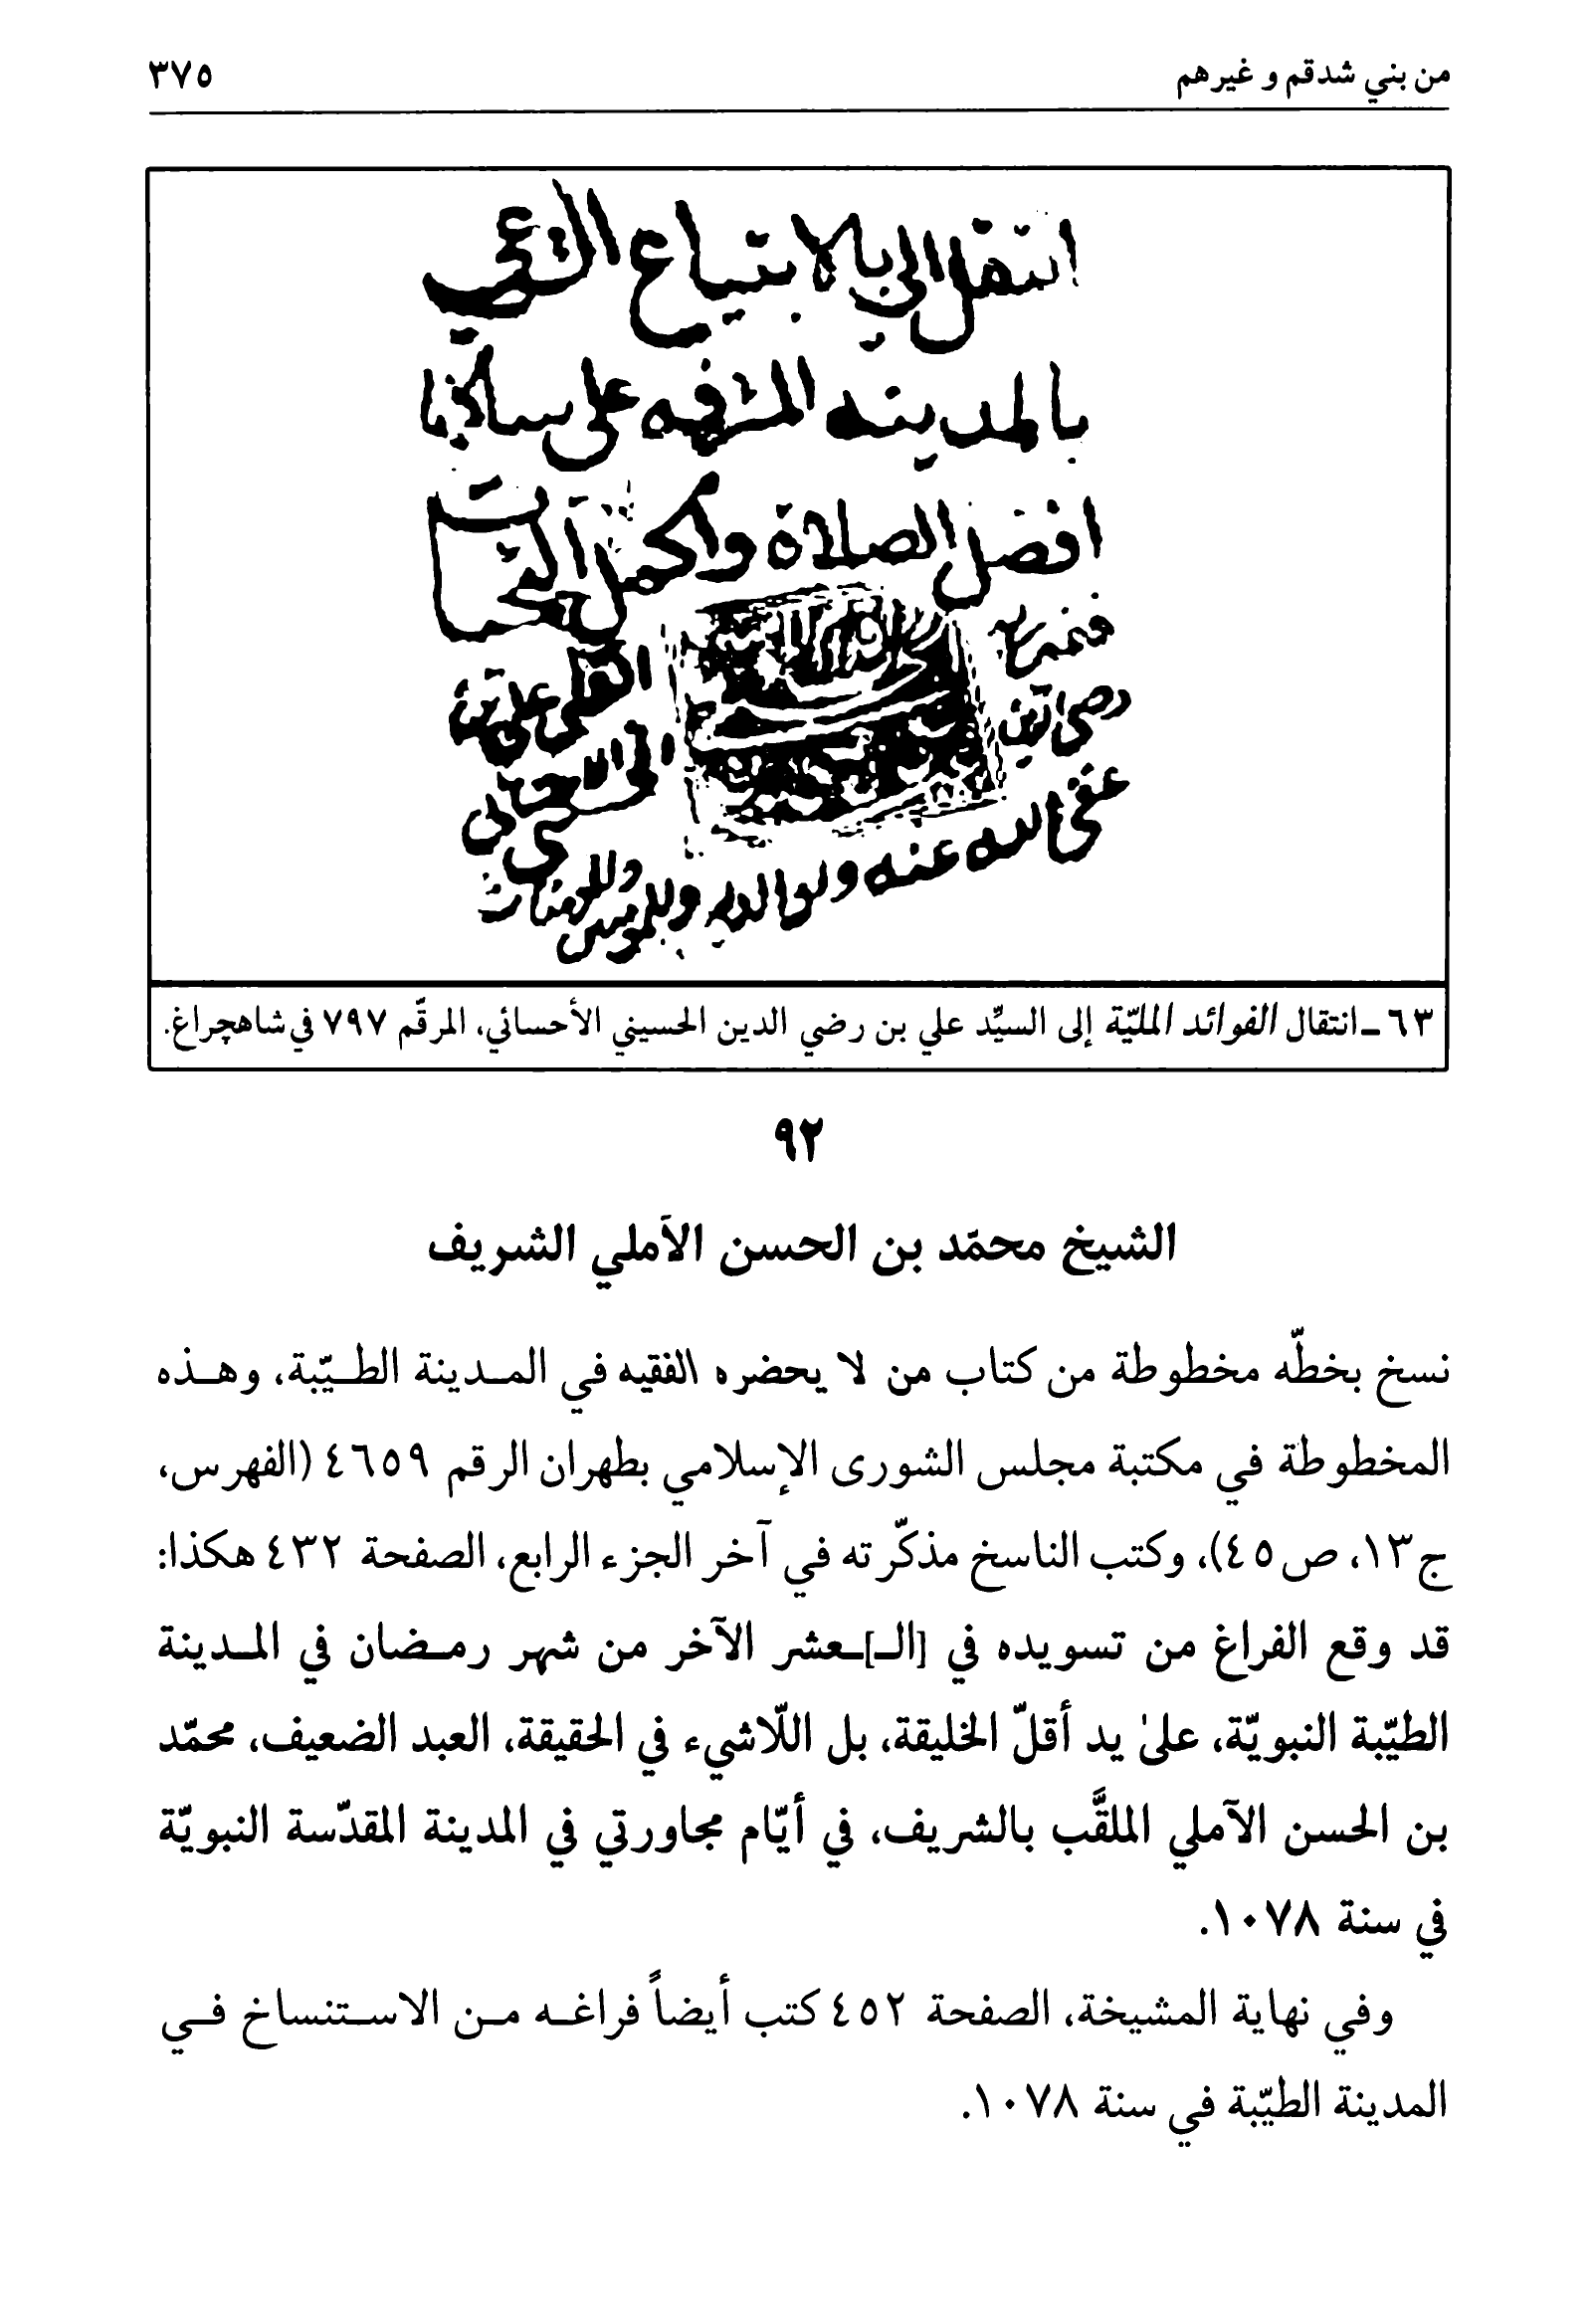 من بني شدقم و غيرهم
٣٧٥
انتقل الي بالابتياع الشرعي
بالمدينه المشرفه على ساكنها
افضل الصلاة واكمل التحيات
رضي الدين
عفى الله عنه ولوالديه وللمؤمنين وللمؤمنات
٦٣ـ انتقال الفوائد المليّة إلى السيِّد علي بن رضي الدين الحسيني الأحسائي، المرقّم ٧٩٧ في شاهچراغ.
٩٢
الشيخ محمّد بن الحسن الآملي الشريف
نسخ بخطّه مخطوطة من كتاب من لا يحضره الفقيه في المـدينة الطـيّبة، وهـذه
المخطوطة في مكتبة مجلس الشورى الإسلامي بطهران الرقم ٤٦٥٩ (الفهرس،
ج١٣، ص٤٥)، وكتب الناسخ مذكّرته في آخر الجزء الرابع، الصفحة ٤٣٢ هكذا:
قد وقع الفراغ من تسويده في [الـ]ـعشر الآخر من شهر رمـضان في المـدينة
الطيّبة النبويّة، علىٰ يد أقلّ الخليقة، بل اللّاشيء في الحقيقة، العبد الضعيف، محمّد
بن الحسن الآملي الملقَّب بالشريف، في أيّام مجاورتي في المدينة المقدّسة النبويّة
في سنة ١٠٧٨.
وفي نهاية المشيخة، الصفحة ٤٥٢ كتب أيضاً فراغـه مـن الاسـتنساخ فـي
المدينة الطيّبة في سنة ١٠٧٨.